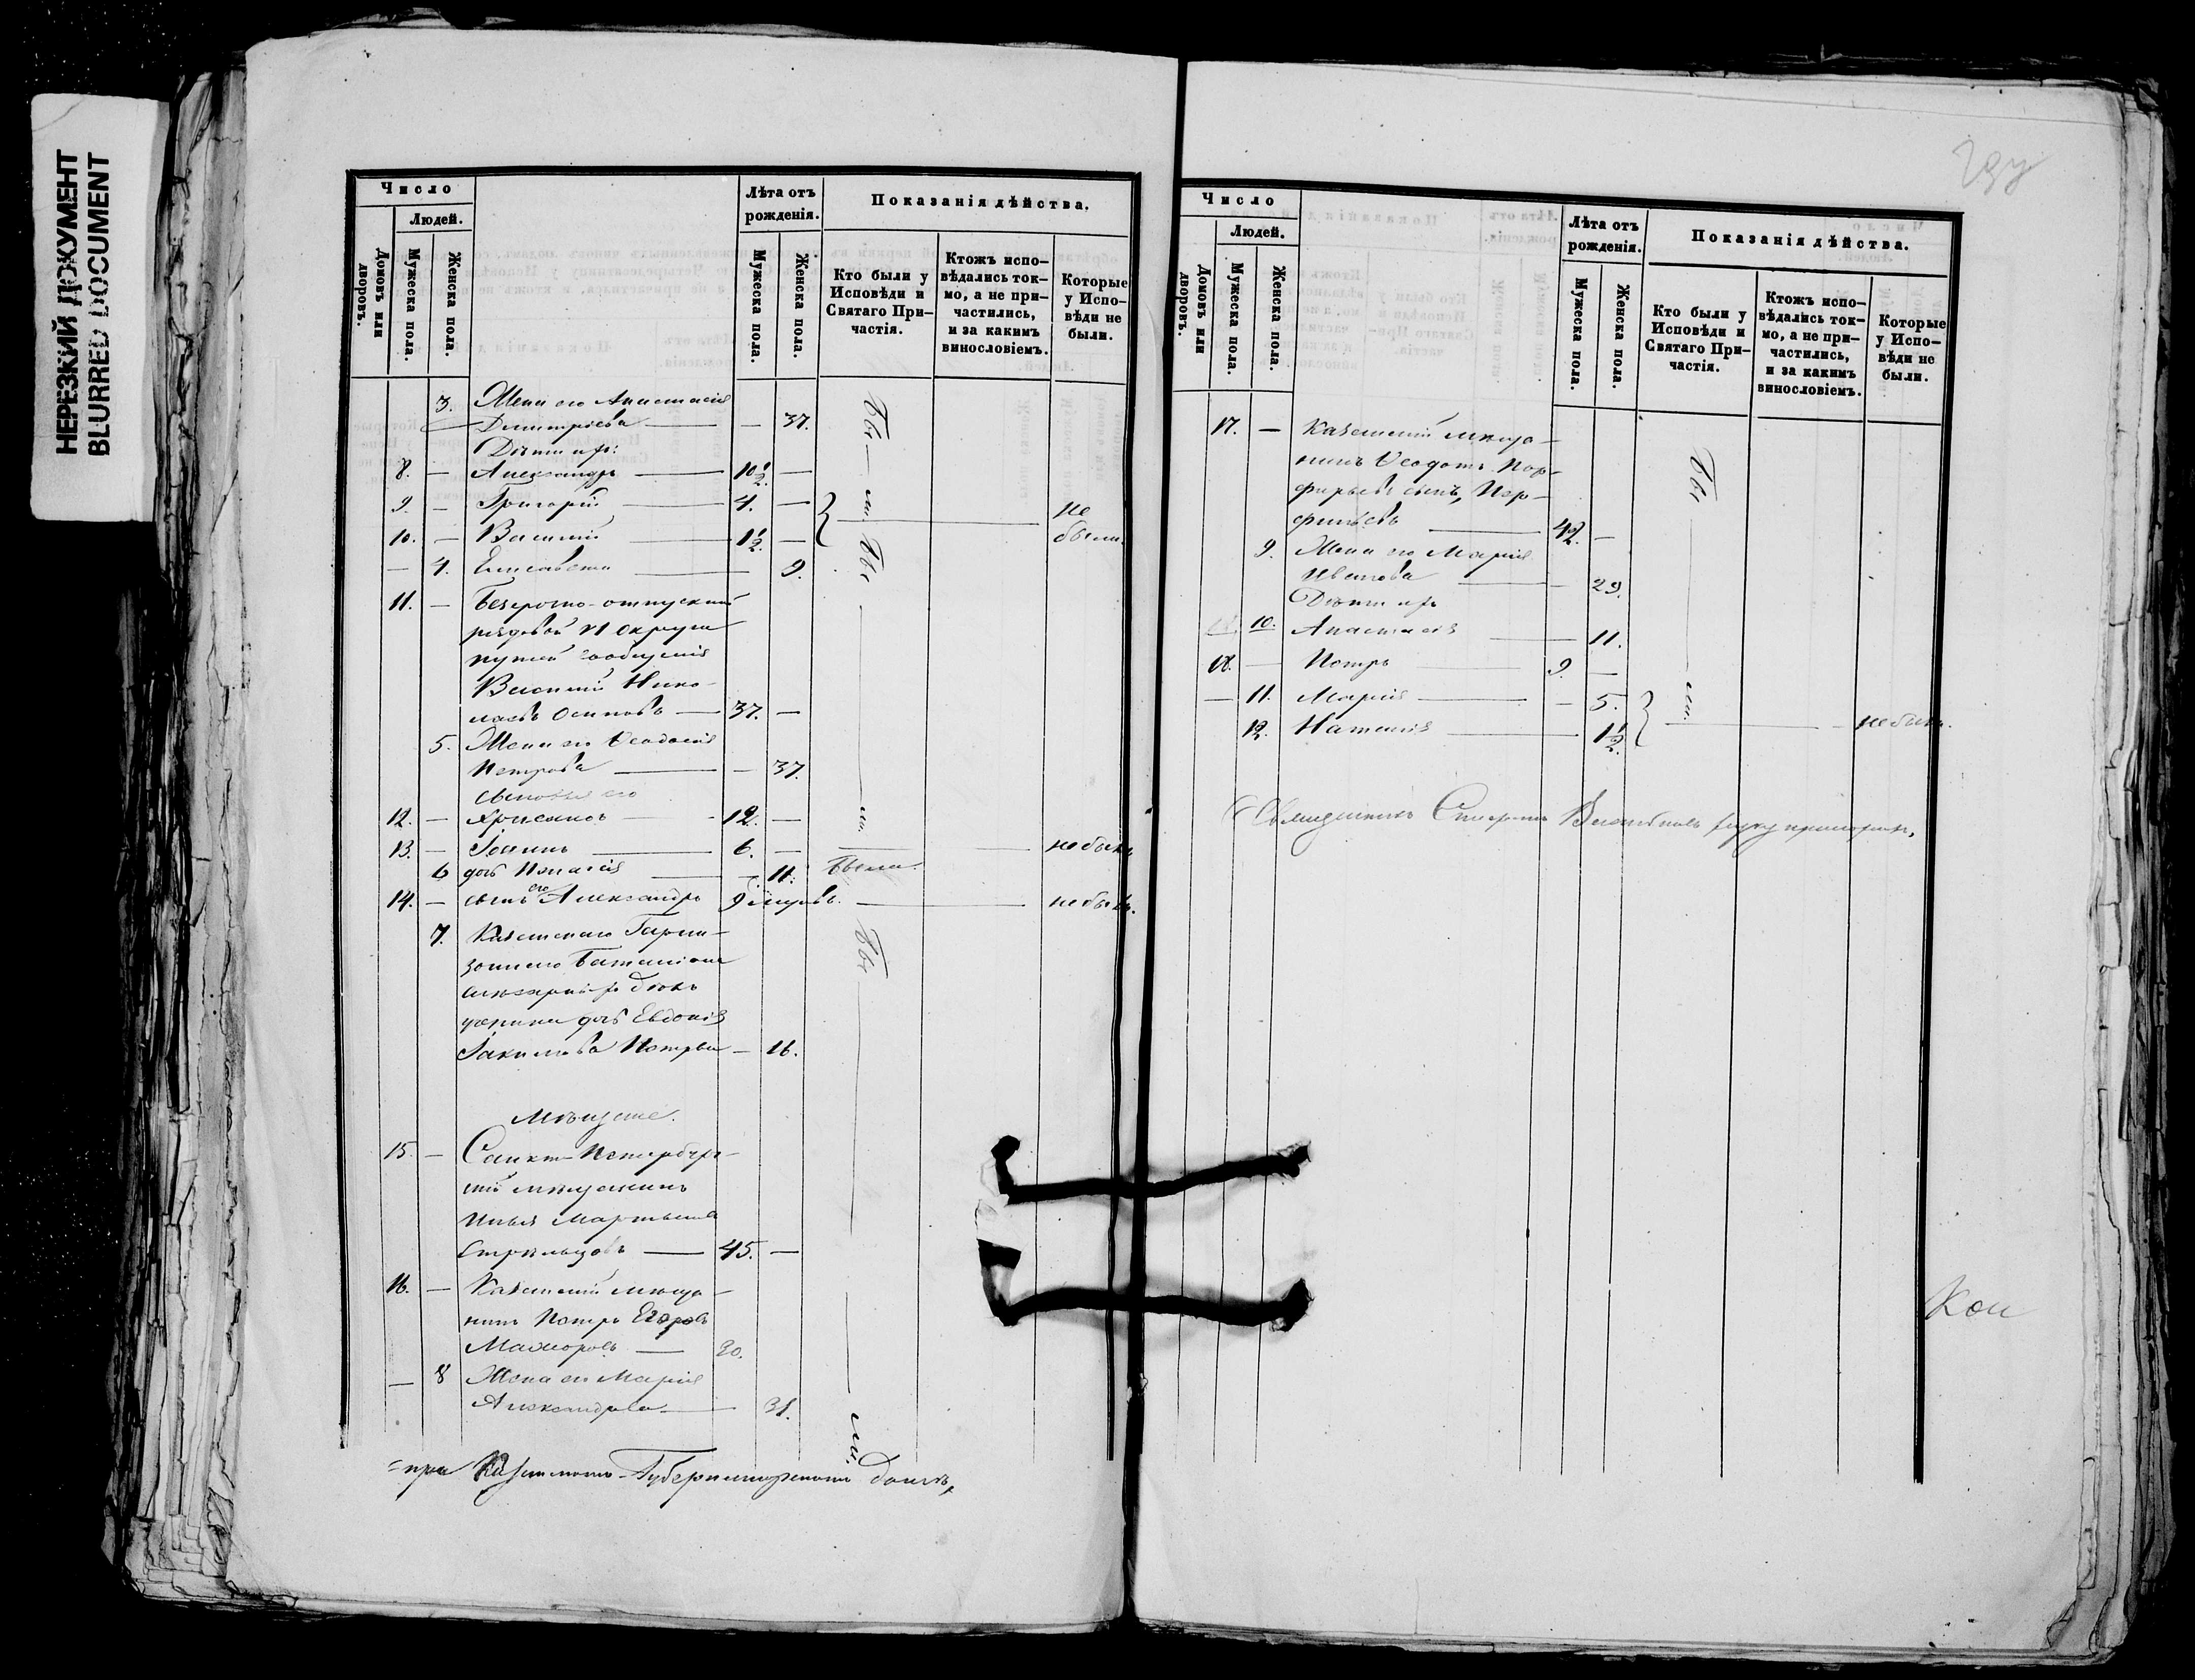 НЕРЕЗКИЙ ДОКУМЕНТ
BLURRED DOCUMENT
Число
Людей.
Домовъ или дворовъ.
Мужеска пола.
Женска пола.
Лѣта отъ рожденія.
Мужеска пола.
Женска пола.
Показанія дѣйства.
Кто были у Исповѣди и Святаго Причастія.
Ктожъ исповѣдались токмо, а не причастились, и за какимъ винословіемъ.
Которые у Исповѣди не были.
3. Жена его Анастасія
Димитріева — — 37. Бы—ли.
Дѣти ихъ:
8. — Александръ — 10 1/2 —
9. — Григорій — 4. — не
10. — Василій — 1 1/2. — были.
— 4. Елисавета — 9. Бы
11. — Безсрочно-отпускный
рядовой VI округа
путей сообщенія
Василій Нико-
лаевъ Осиповъ — 37. —
5. Жена его Ѳеодосія
Петрова — — 37.
Сыновья его
12. — Хрисанѳъ — 12. — ли.
13. — Іоаннъ — 6. — не былъ
6 дочь Пелагія — — 11. Была.
14. — сынъ его Александръ 9 мѣсяцовъ. — не былъ.
7. Казанскаго Гарни-
зоннаго Баталіона
ученика дочь Евдокія
Іакимова Петрова — 16. Бы
Мѣщане.
15. — Санктъ-Петербург-
скій мѣщанинъ
Илья Мартыновъ
Стрѣльцовъ — 45. —
16. — Казанскій мѣща-
нинъ Петръ Егоровъ
30.
— 8 Жена его Марія
Александрова — 31. ли.
=при Казанскомъ Губернаторскомъ домѣ,
Число
Людей.
Домовъ или дворовъ.
Мужеска пола.
Женска пола.
Лѣта отъ рожденія.
Мужеска пола.
Женска пола.
Показанія дѣйства.
Кто были у Исповѣди и Святаго Причастія.
Ктожъ исповѣдались токмо, а не причастились, и за какимъ винословіемъ.
Которые у Исповѣди не были.
17. — Казанскій мѣща-
нинъ Ѳеодотъ Пор-
фирьевъ сынъ, Пор-
фирьевъ — 42. — Бы
9. Жена его Марія
Иванова — — 29.
Дѣти ихъ
10. Анастасія — 11.
18. — Петръ — 9. — ли.
— 11. Марія — — 5.
12. Наталія — 1 1/2. не были.
Священникъ руку приложилъ,
Кои